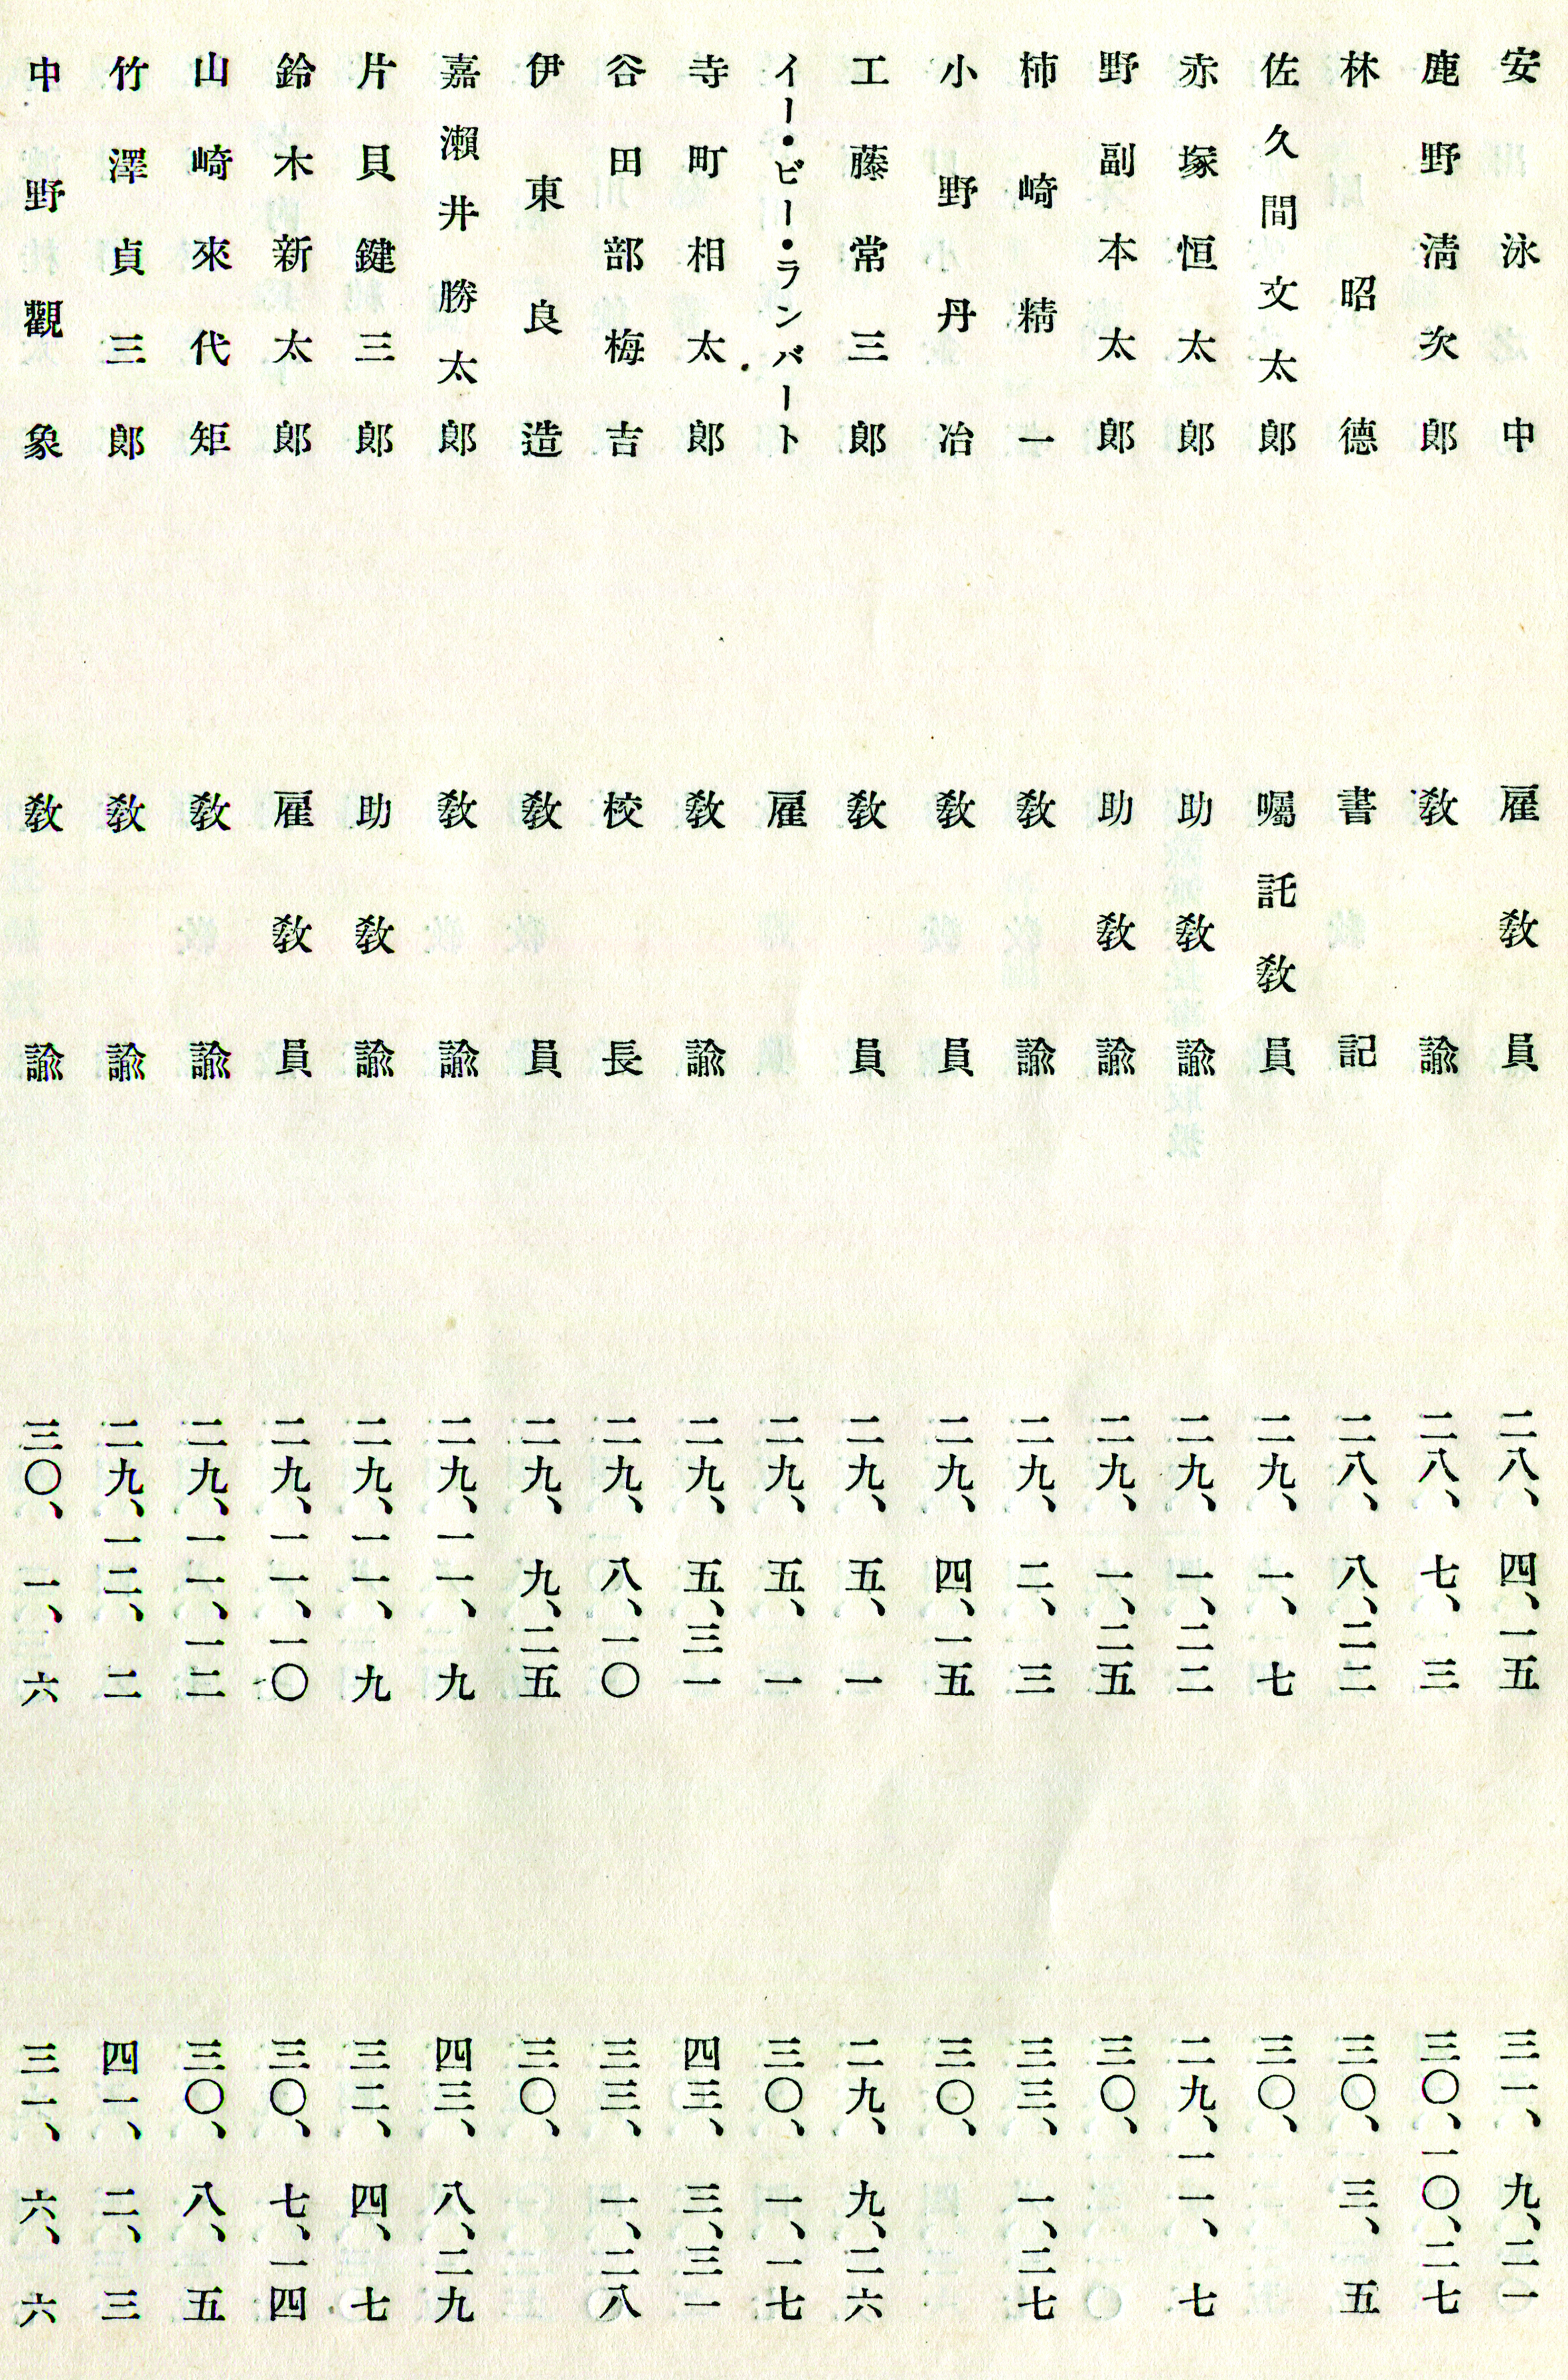 安泳中　雇教員　二八、四、一五　三一、九、二一
鹿野淸次郎　教諭　二八、七、三　三〇、一〇、二七
林昭德　書記　二八、八、二二　三〇、三、五
佐久間文太郎　囑託教員　二九、一、七　三〇、
赤塚恒太郎　助教諭　二九、一、二二　二九、一一、七
野副本太郎　助教諭　二九、一、二五　三〇、
柿崎精一　教諭　二九、二、三　三三、一、二七
小野丹治　教員　二九、四、一五　三〇、
工藤常三郎　教員　二九、五、一　二九、九、二六
イー・ビー・ランバート　雇　二九、五、一　三〇、一、一七
寺町相太郎　教諭　二九、五、三一　四三、三、三一
谷田部梅吉　校長　二九、八、一〇　三三、一、二八
伊東良造　教員　二九、九、二五　三〇、
嘉瀨井勝太郎　教諭　二九、一一、九　四三、八、二九
片貝鍵三郎　助教諭　二九、一一、九　三二、四、七
鈴木新太郎　雇教員　二九、一一、一〇　三〇、七、一四
山崎來代矩　教諭　二九、一一、一二　三〇、八、五
竹澤貞三郎　教諭　二九、一二、二　四一、二、三
中野觀象　教諭　三〇、一、六　三一、六、六